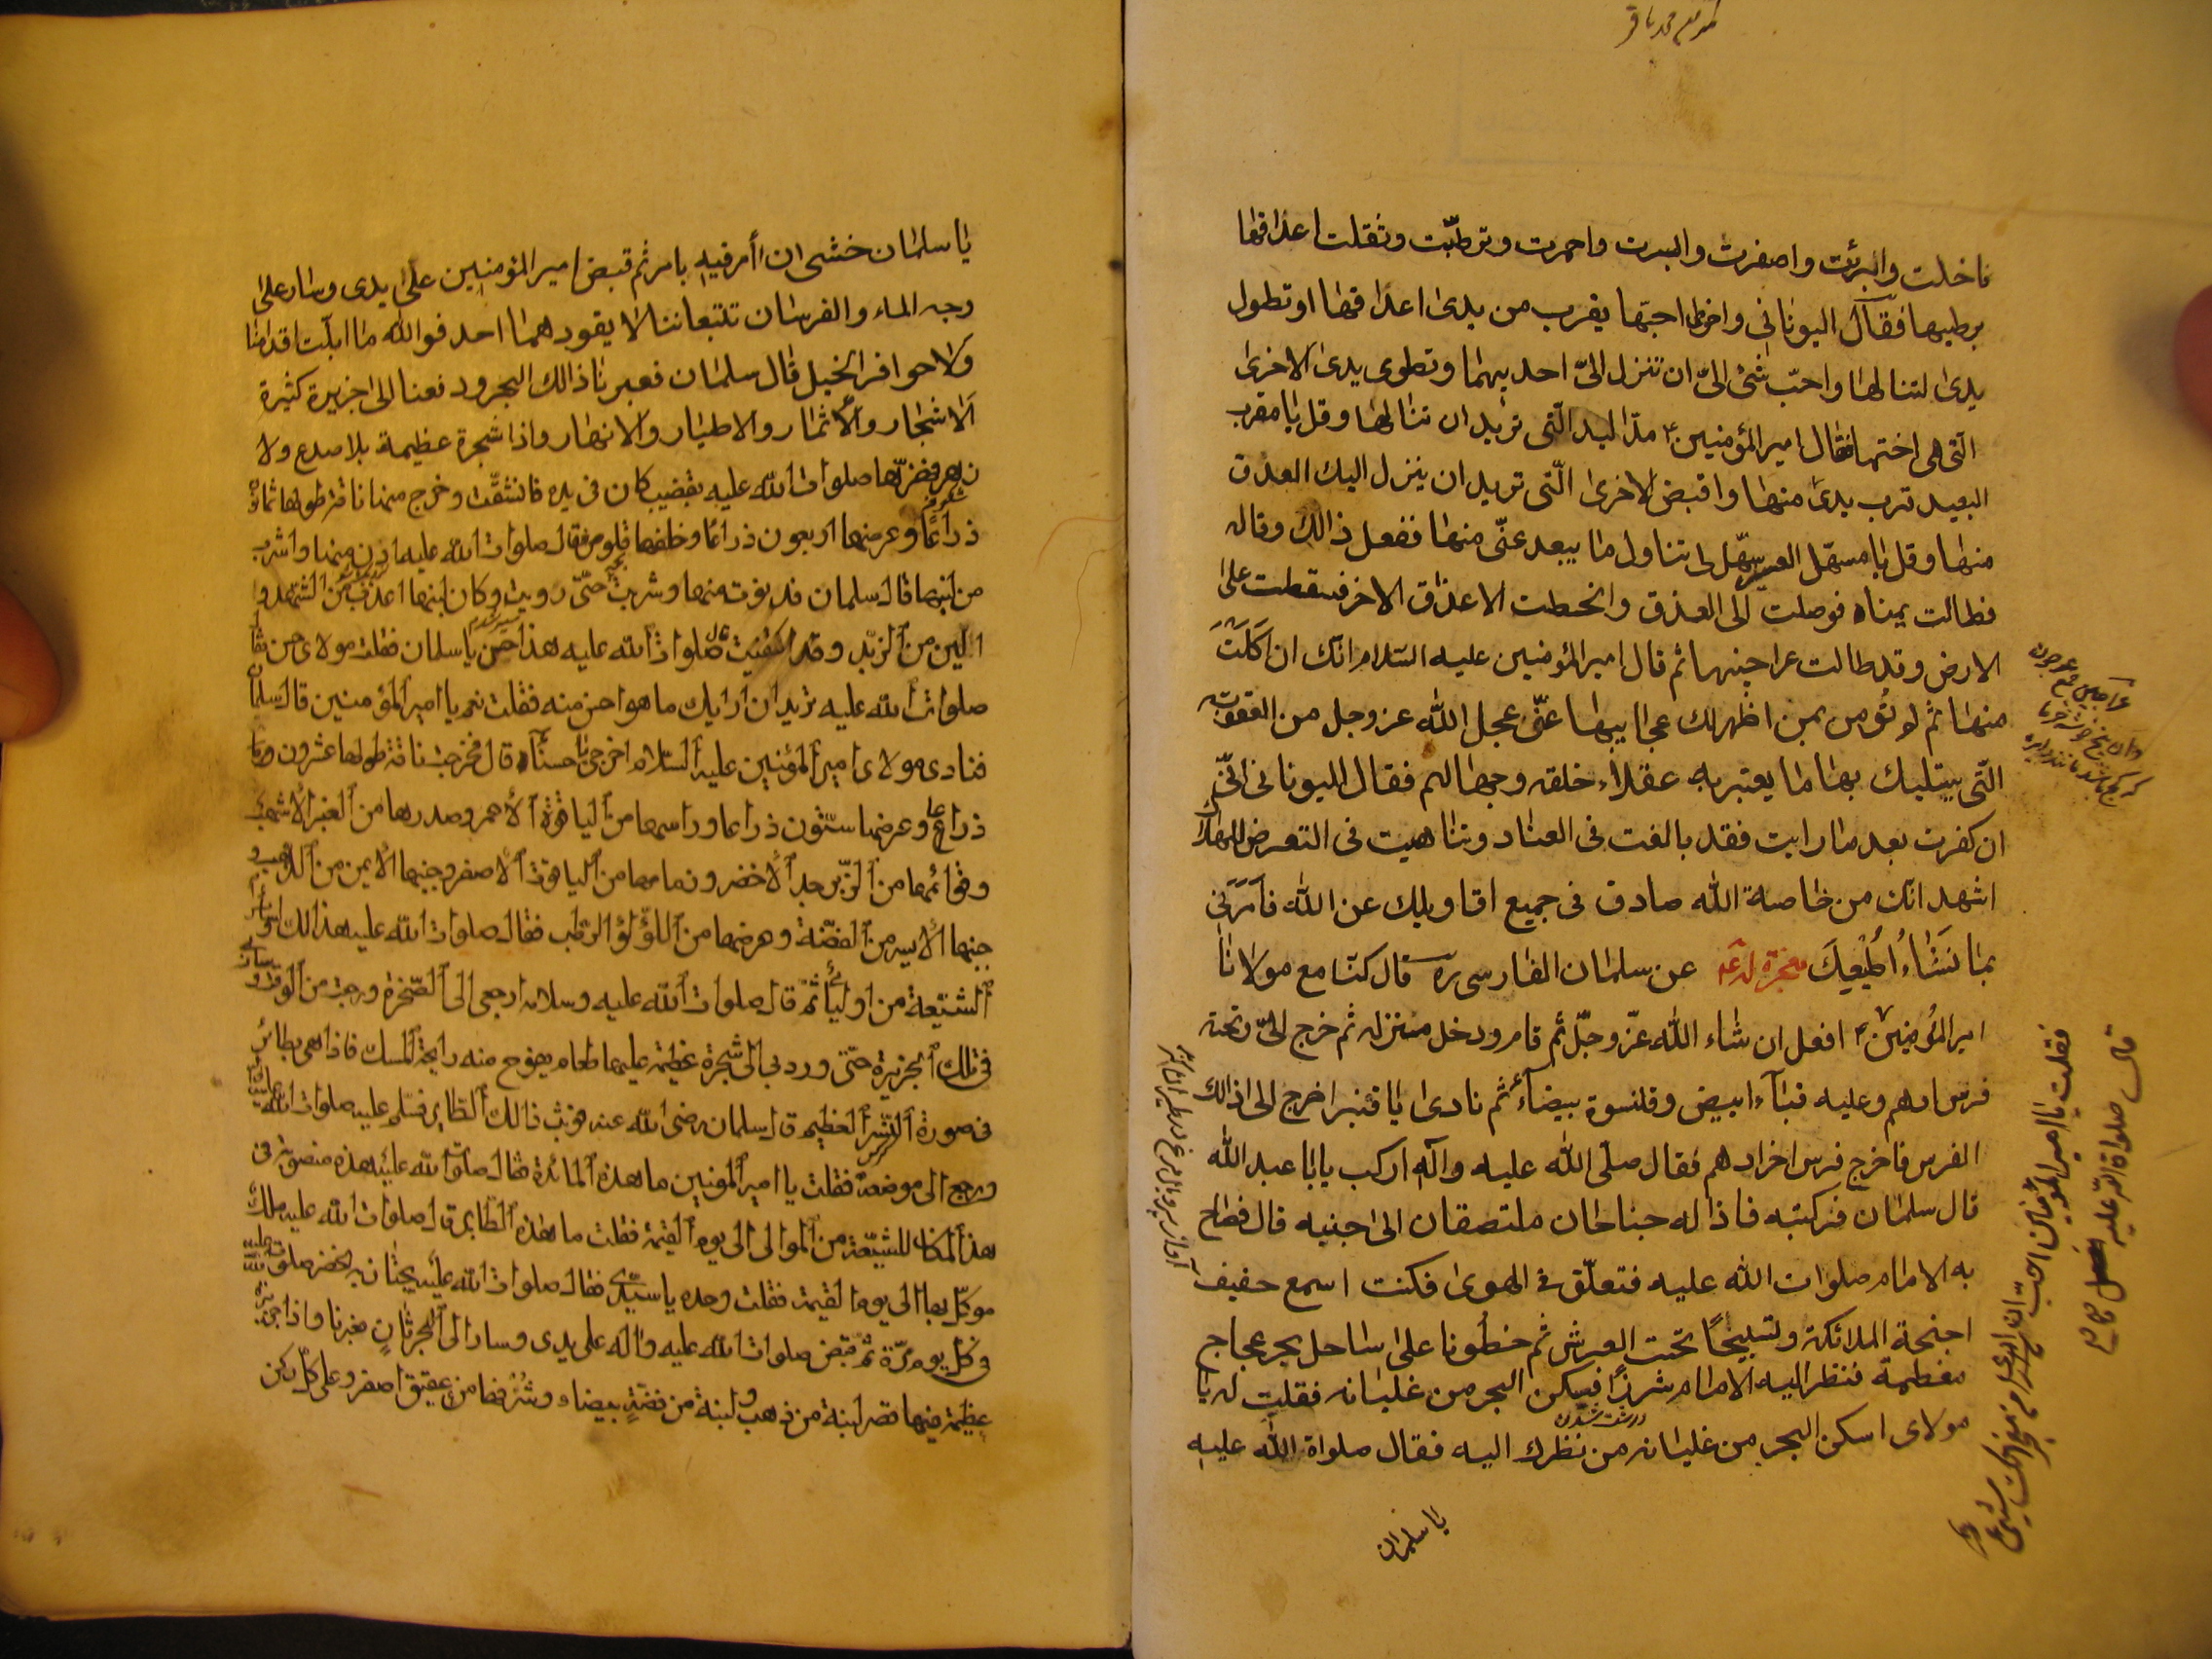 فاخلت وابرئت واصفرت وابسرت واحمرت وترطبّت وثقلت اعذاقها
برطبها فقال اليونانى واخرى احبّها يقرب من يدى اعذاقها او تطول
يدى لتنالها واحبّ شئ الىّ ان تنزل الىّ احديهما وتطوى يدى الاخرى
الّتى هى اختها فقال اميرالمؤمنين ع مدّ اليد الّتى تريد ان تنالها وقل يا مقرب
البعيد قرب يدى منها واقبض الاخرى الّتى تريد ان ينزل اليك العذق
منها وقل يا مسهّل العسير سهّل لى تناول ما يبعد عنّى منها ففعل ذالك وقاله
فطالت يمناه فوصلت الى العذق وانحطت الاعذاق الاخر فسقطت على
الارض وقد طالت عراجينها ثم قال اميرالمؤمنين عليه السّلام انّك ان اَكَلْتَ
منها ثم لو تؤمن بمن اظهرلك عجايبها عنّى عجل الله عز وجل من العقوبة
الّتى يبتليك بها ما يعتبر به عقلاء خلقه وجهالهم فقال اليونانى انّى
ان كفرت بعد ما رايت فقد بالغت فى العناد وتناهيت فى التعرض للهلاك
اشهد انّك من خاصة الله صادق فى جميع اقاويلك عن الله فأمُرنى
بما تَشَاءُ اُطيعكَ معجزة لدعه عن سلمان الفارسى ره قال كنّا مع مولانا
اميرالمؤمنين ع افعل ان شاء الله عزّ وجلّ ثم قام ودخل منزله ثم خرج الىّ وتحته
فرس ادهم وعليه قباء ابيض وقلنسوة بيضاء ثم نادى يا قنبر اخرج الى ذالك
الفرس فاخرج فرس اخر ادهم فقال صلّى الله عليه وآله اركب يابا عبد الله
قال سلمان فركبته فاذا له جناحان ملتصقان الى جنبيه قال فصاح
به الامام صلوات الله عليه فتعلّق فى الهوى فكنت اسمع حفيف
اجنحة الملائكة وتسبيحًا تحت العرش ثم خطونا على ساحل بحر عجاج
مغطمة فنظر اليه الامام شرزًا فسكن البحر من غليانه فقلت له يا
مولاى اسكن البحر من غليانه من نظرك اليه فقال صلواة الله عليه
يا سلمان
فقلت يا اميرالمؤمنين احب ان
قال صلواة الله عليه
يا سلمان خشى ان أمر فيه بامر ثم قبض اميرالمؤمنين على يدى وسار على
وجه الماء والفرسان تتبعاننا لا يقودهما احد فوالله ما ابلّت اقدامنا
ولا حوافر الخيل قال سلمان فعبرنا ذالك البحر ودفعنا الى جزيرة كثيرة
الاشجار والأثمار والاطيار والانهار واذا شجرة عظيمة بلا صدع ولا
زهر فهزّها صلوات الله عليه بقضيب كان فى يده فانشقّت وخرج منها ناقة طولها ثمانون
ذراعًا وعرضها اربعون ذراعًا وخلفها قلوص فقال صلوات الله عليه ادن منها واشرب
من لبنها قال سلمان فدنوت منها وشربت حتّى رويت وكان لبنها اعذب من الشهد و
الين من الزّبد وقد اكتفيت قال صلوات الله عليه هذا حسن يا سلمان فقلت مولاى حسن فقال
صلوات الله عليه تريد ان ارايك ما هو احسن منه فقلت نعم يا اميرالمؤمنين قال سلمان
فنادى مولاى اميرالمؤمنين عليه السّلام اخرجى يا حسناء قال فخرجت ناقة طولها عشرون وماة
ذراع وعرضها ستّون ذراعا وراسها من الياقوة الأحمر وصدرها من العنبر الأشهب
وقوائمها من الزّبرجد الأخضر وزمامها من الياقوة الأصفر وجنبها الأيمن من الذهب و
جنبها الأيسر من الفضّة وعرضها من اللّؤلؤ الرّطب فقال صلوات الله عليه
الشّيعة من اوليائى ثمّ قال صلوات الله عليه وسلامه ارجعى الى الصّخرة ورجعت من الوقت و
فى تلك الجزيرة حتّى ورد بى الى شجرة عظيمة عليها طعام يفوح منه رايحة المسك فاذا هى بطائر
فى صورة النّسر العظيم قال سلمان رضى الله عنه فوثب ذالك الطّاير فسلّم عليه صلوات الله عليه
ورجع الى موضعه فقلت يا اميرالمؤمنين ما هذه المائدة فقال صلوات الله عليه هذه منصوبة فى
هذا المكان للشيّعة من الموالى الى يوم القيمة فقلت ما هذا الطّاير قال صلوات الله عليه ملك
موكّل بها الى يوم القيمة فقلت وحده يا سيّدى فقال صلوات الله عليه يجتاز به الخضر صلوات الله عليه
فى كلّ يوم مرّة ثمّ قبض صلوات الله عليه واله على يدى وسار الى البحر ثانٍ فعبرنا واذا جزيرة
عظيمة فيها قصر لبنة من ذهب ولبنة من فضّةٍ بيضاء وشُرَفها من عقيق اصفر وعلى كلّ ركن